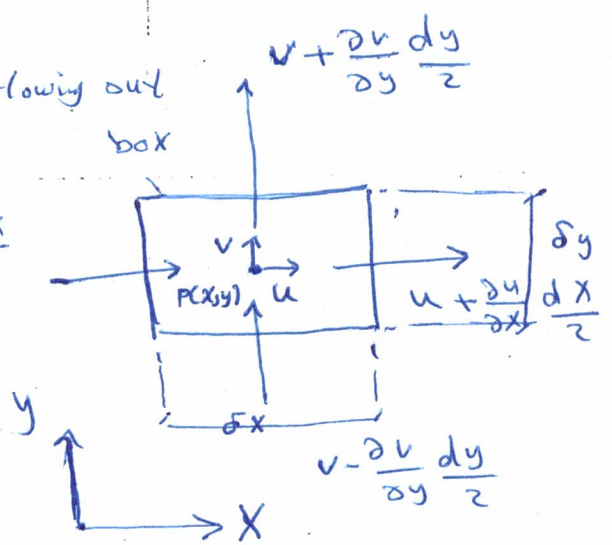 v + ∂v/∂y dy/2
lowing out
box
v
P(x,y) u
δy
u + ∂u/∂x dx/2
δx
y
v - ∂v/∂y dy/2
x